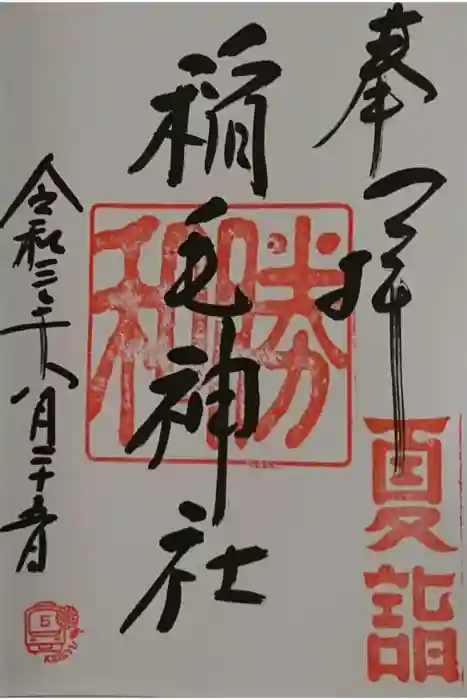 奉拝
夏詣
稲毛神社
勝
和
令和三年八月二十五日